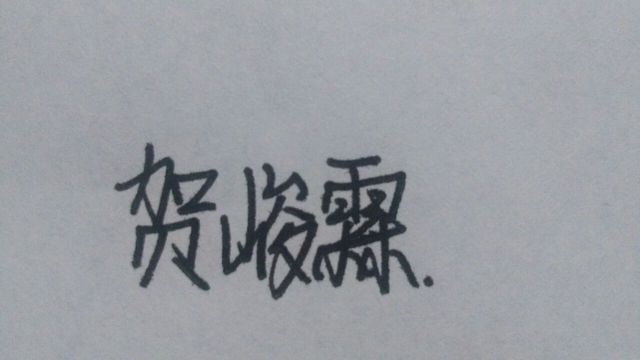 贺峻霖.